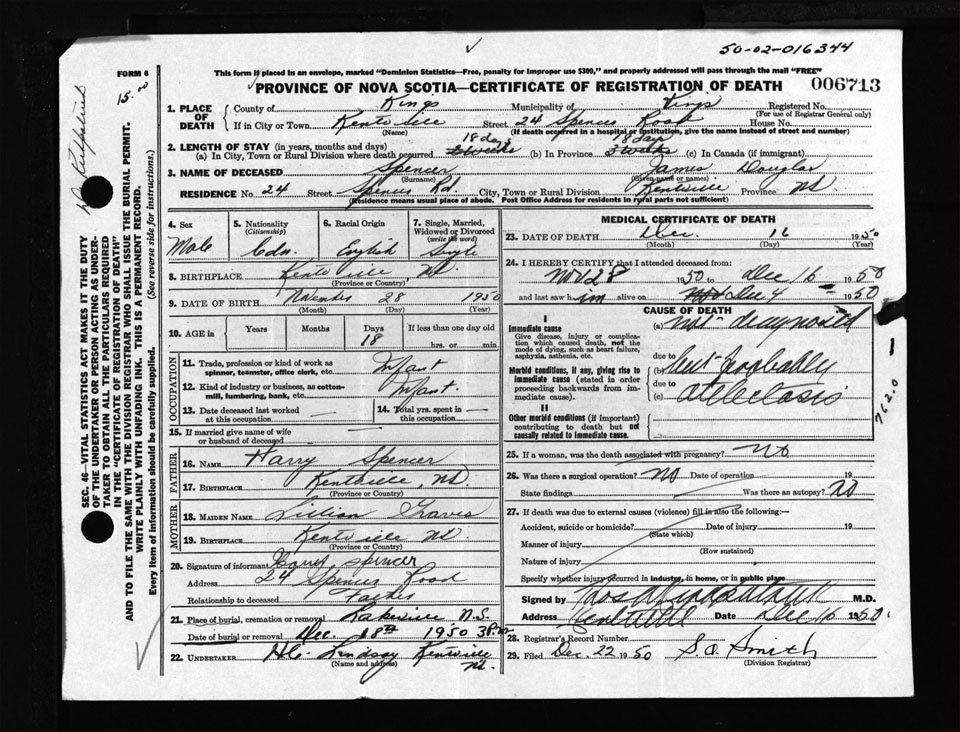 50-02-016344
FORM 6
This form if placed in an envelope, marked "Dominion Statistics—Free, penalty for improper use $300," and properly addressed will pass through the mail "FREE"
PROVINCE OF NOVA SCOTIA—CERTIFICATE OF REGISTRATION OF DEATH 006713
15.00
SEC. 46—VITAL STATISTICS ACT MAKES IT THE DUTY
OF THE UNDERTAKER OR PERSON ACTING AS UNDER-
TAKER TO OBTAIN ALL THE PARTICULARS REQUIRED
IN THE "CERTIFICATE OF REGISTRATION OF DEATH"
AND TO FILE THE SAME WITH THE DIVISION REGISTRAR WHO SHALL ISSUE THE BURIAL PERMIT.
WRITE PLAINLY WITH UNFADING INK. THIS IS A PERMANENT RECORD.
Every item of information should be carefully supplied. (See reverse side for instructions.)
1. PLACE OF DEATH County of Kings Municipality of Kings Registered No.
(For use of Registrar General only)
If in City or Town Kentville Street 24 Spencer Road House No.
(Name) (If death occurred in a hospital or institution, give the name instead of street and number)
2. LENGTH OF STAY (in years, months and days)
(a) In City, Town or Rural Division where death occurred 18 days 3 weeks (b) In Province 18 days 3 weeks (c) In Canada (if immigrant)
3. NAME OF DECEASED Spencer James Douglas
(Surname) (Given name or names)
RESIDENCE No. 24 Street Spencer Rd. City, Town or Rural Division Kentville Province NS
(Residence means usual place of abode. Post Office Address for residents in rural parts not sufficient)
4. Sex 5. Nationality (Citizenship) 6. Racial Origin 7. Single, Married, Widowed or Divorced (write the word)
Male Cdn. English Single
8. BIRTHPLACE Kentville, NS.
(Province or Country)
9. DATE OF BIRTH November 28 1950
(Month) (Day) (Year)
10. AGE in Years Months Days 18 If less than one day old
hrs. or min.
OCCUPATION
11. Trade, profession or kind of work as
spinner, teamster, office clerk, etc. Infant
12. Kind of industry or business, as cotton-
mill, lumbering, bank, etc. Infant.
13. Date deceased last worked
at this occupation
14. Total yrs. spent in
this occupation
15. If married give name of wife
or husband of deceased
FATHER
16. NAME Harry Spencer
17. BIRTHPLACE Kentville, NS.
(Province or Country)
MOTHER
18. MAIDEN NAME Lillian
19. BIRTHPLACE Kentville NS.
(Province or Country)
20. Signature of informant Harry Spencer
Address 24 Spencer Road
Relationship to deceased Father
21. Place of burial, cremation or removal N.S.
Date of burial or removal Dec. 18th 1950 3 P.M.
22. UNDERTAKER Lindsay Kentville NS.
(Name and address)
MEDICAL CERTIFICATE OF DEATH
23. DATE OF DEATH Dec. 16 1950
(Month) (Day) (Year)
24. I HEREBY CERTIFY that I attended deceased from:
Nov 28 1950 to Dec 16 1950
and last saw him alive on Dec 4 1950
CAUSE OF DEATH
I
Immediate cause
Give disease, injury or complication
which caused death, not the
mode of dying, such as heart failure,
asphyxia, asthenia, etc.
(a) not diagnosed
due to
Morbid conditions, if any, giving rise to
immediate cause (stated in order
proceeding backwards from im-
mediate cause).
(b) but probably
due to
(c) atelectasis
II
Other morbid conditions (if important)
contributing to death but not
causally related to immediate cause.
762.0
25. If a woman, was the death associated with pregnancy? No
26. Was there a surgical operation? No Date of operation 19
State findings Was there an autopsy? No
27. If death was due to external causes (violence) fill in also the following:—
Accident, suicide or homicide? Date of injury 19
(State which)
Manner of injury
(How sustained)
Nature of injury
Specify whether injury occurred in industry, in home, or in public place
Signed by M.D.
Address Kentville Date Dec 16 1950.
28. Registrar's Record Number
29. Filed Dec. 22 1950 S.O. Smith
(Division Registrar)